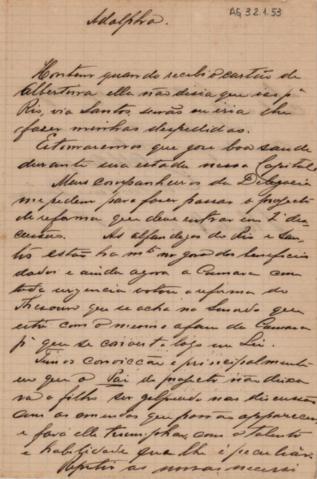 AG 32.1.53
Adolpho.
Hontem quando recebi o cartão de
Albertina ella não disia que ias pª
Rio, via Santos, senão eu iria lhe
fazer minhas despedidas.
Estimaremos que gose boa saude
durante sua estada nessa Capital
Meus companheiros da Delegacia
me pedem para fazer passar o projecto
de reforma que deve entrar em 2ª dis-
cussão. As alfandegas do Rio e San-
tos estão ha mto no goso dos beneficios
dados e ainda agora a Camara com
toda urgencia votou a reforma do
Thesouro que se acha no Senado que
está com o mesmo afan da Camara
pª que se converta logo em Lei.
Temos convicção e principalmente
eu que o Pai do projecto não deixa
rá o filho ser golpeado nas discussões
com as emendas que possam apparecer,
e fará elle triumphar, com o talento
e habilidade que lhe é peculiar.
as nossas necessi